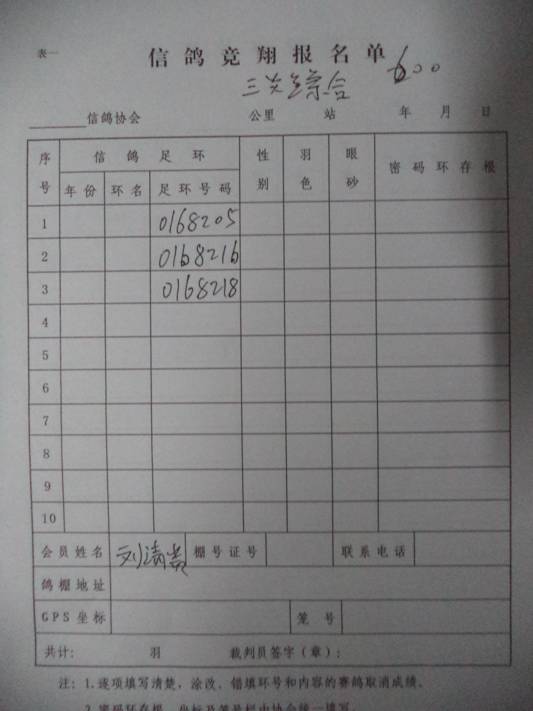 表一
信鸽竞翔报名单 600
三关综合
______信鸽协会 公里 站 年 月 日
序号 信鸽足环 性别 羽色 眼砂 密码环存根
年份 环名 足环号码
1 0168205
2 0168216
3 0168218
4
5
6
7
8
9
10
会员姓名 刘清贵 棚号证号 联系电话
鸽棚地址
GPS坐标 笼号
共计: 羽 裁判员签字(章):
注: 1.逐项填写清楚,涂改、错填环号和内容的赛鸽取消成绩。
2.密码环存根、坐标及笼号栏由协会统一填写。